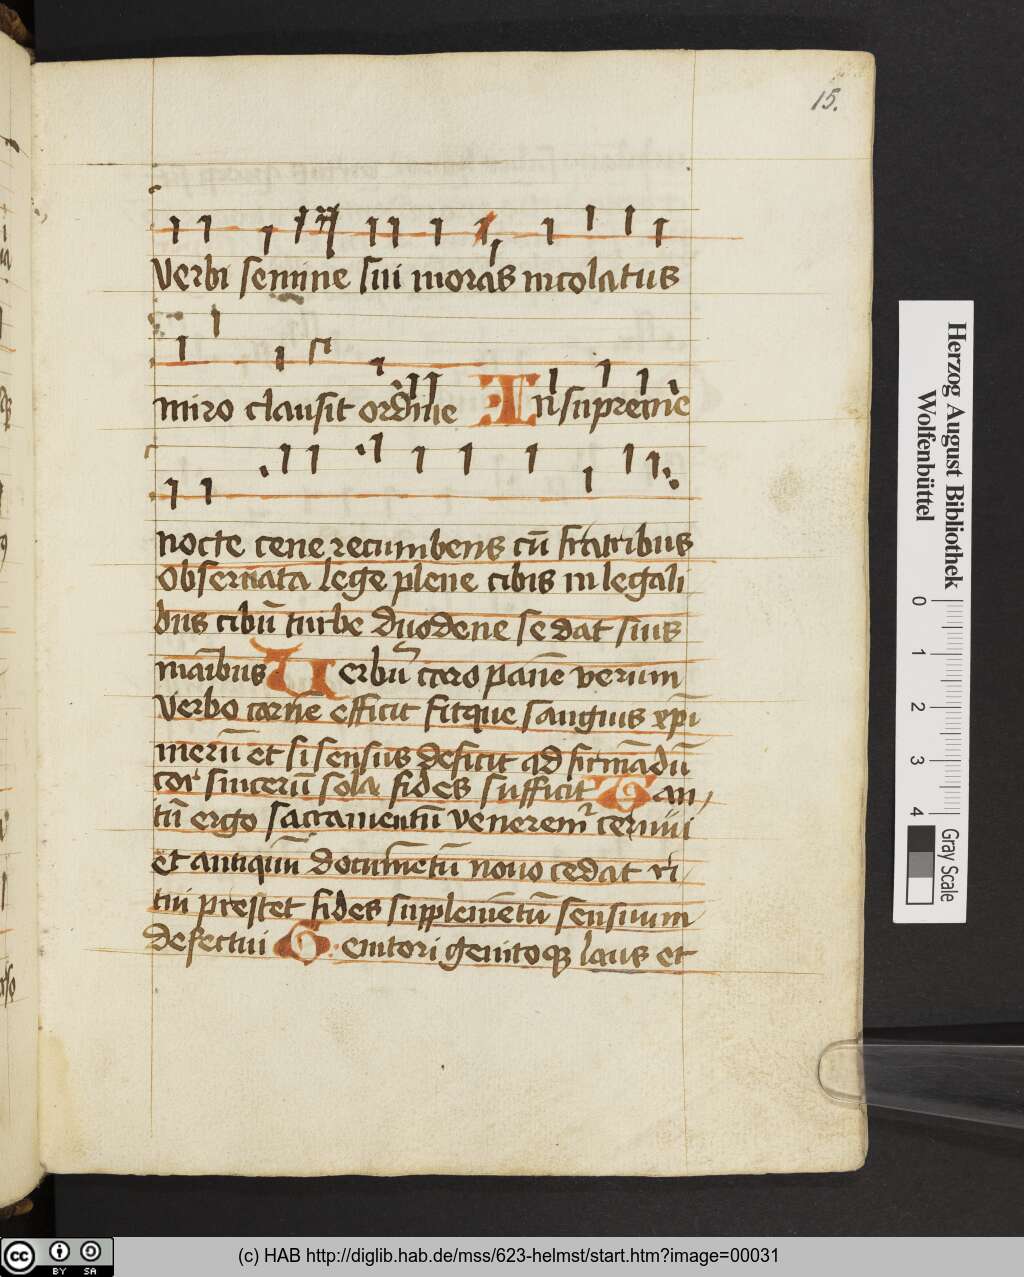 15.
Verbi semine sui moras incolatus
miro clausit ordine In supreme
nocte cene recumbens cū fratribus
Obseruata lege plene cibis in legali
bus cibū turbe duodene se dat suis
manibus Uerbū caro panē verum
Verbo carnē efficit fitque sanguis xpi
merū et si sensus deficit ad firmādū
cor sincerū sola fides sufficit Tan
tū ergo sacramentū venerem̄ cernui
et antiquū documētū nouo cedat ri
tui prestet fides supplemētū sensuum
defectui Genitori genitoqꝫ laus et
Herzog August Bibliothek
Wolfenbüttel
0 1 2 3 4
Gray Scale
cc BY SA
(c) HAB http://diglib.hab.de/mss/623-helmst/start.htm?image=00031